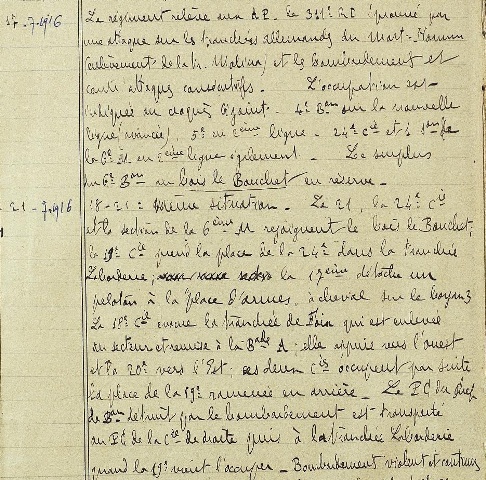 17-7-1916 Le régiment relève aux A.P. le 311e RI éprouvé par
une attaque sur les tranchées allemandes du Mort-Homme
(enlèvement de la tr. ) et le bombardement et
contre attaques consécutifs. L'occupation est
indiquée au croquis ci-joint. 4e Bon sur la nouvelle
ligne (avancée), 5e en 2ème ligne - 24e Cie et 1
la 6e M en 2ème ligne également - Le surplus
du 6e Bon au bois le Bouchet en réserve -
- 21 - 7-1916 18-21 = même situation. Le 21, la 24e Cie
et la section de la 6ème M rejoignent le bois le Bouchet,
la 19e Cie prend la place de la 24e dans la tranchée
Laborderie, la 17ème détache un
peloton à la place d'armes, à cheval sur le boyau 3
La 18e Cie évacue la tranchée de Foin qui est enlevée
au secteur et remise à la Bde A; elle appuie vers l'ouest
et la 20e vers l'Est; ces deux Cies occupent par suite
la place de la 19e ramenée en arrière - Le PC du chef
de Bon détruit par le bombardement est transporté
au PC de la Cie de droite puis à la tranchée Laborderie
quand la 19e vient l'occuper - Bombardement violent et continu